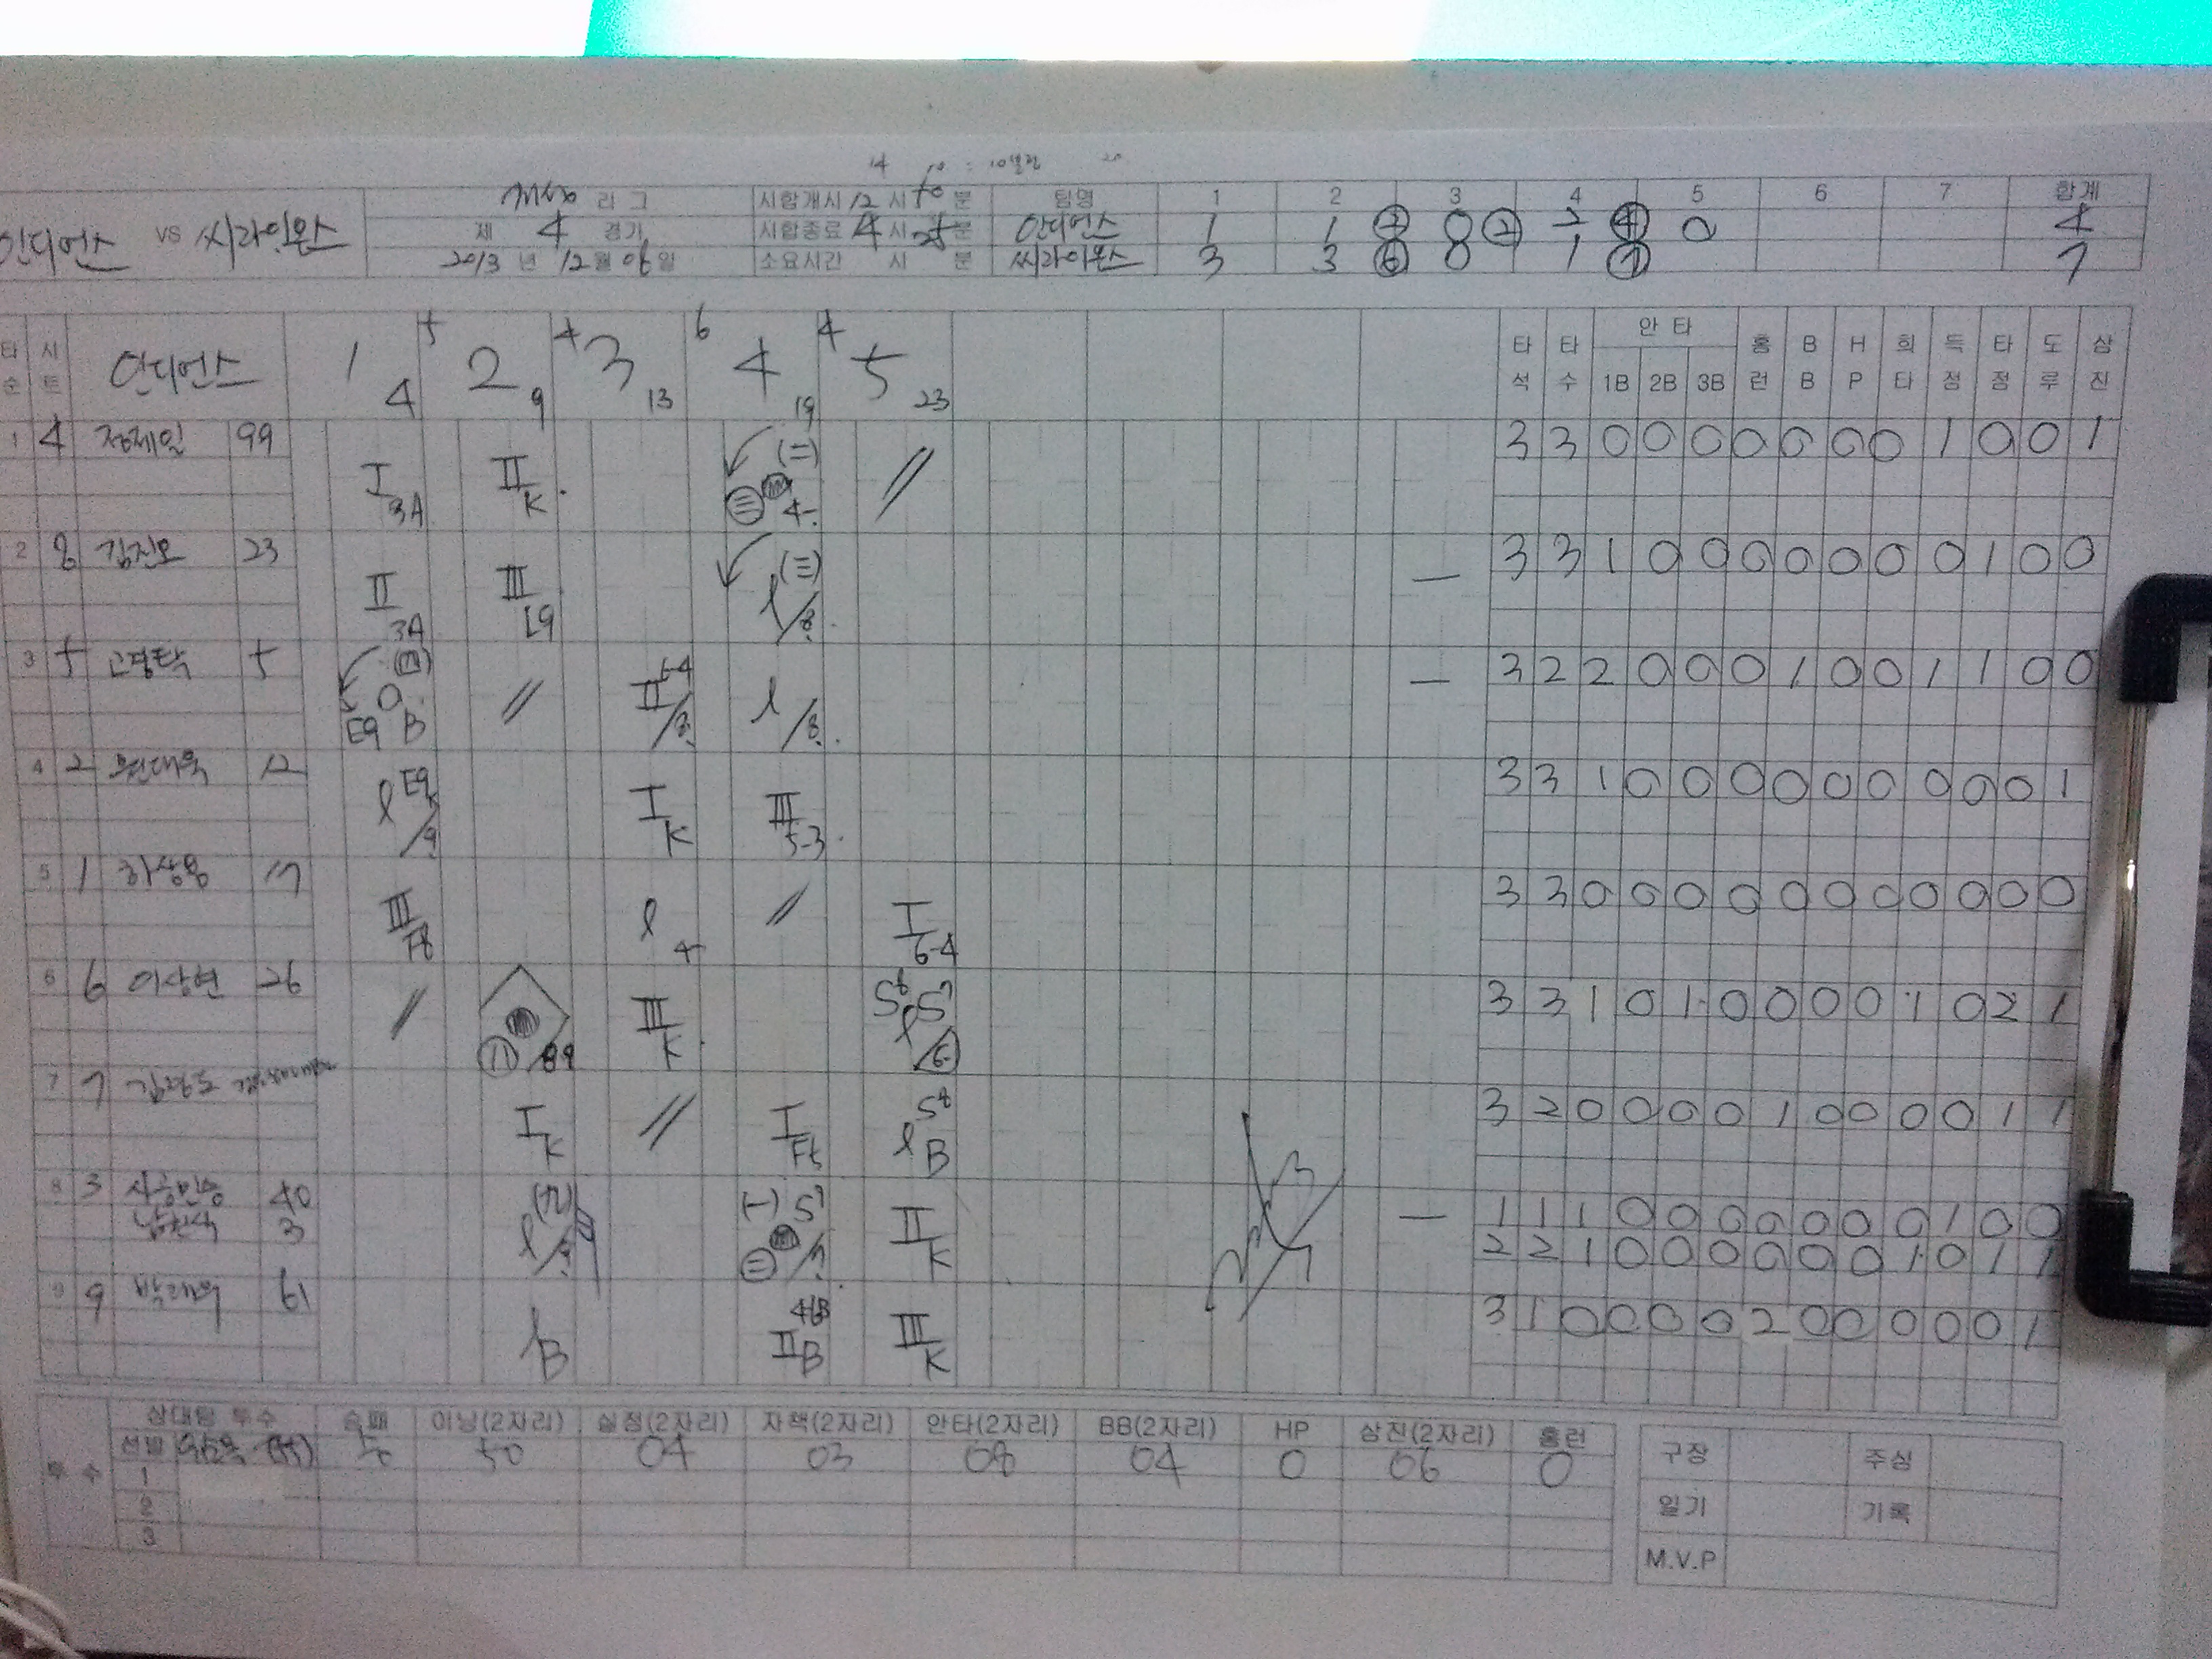 리그 시합개시 12시 분 팀명 1 2 3 4 5 6 7 합계
인디언스 vs 씨라이온스 제 4 경기 시합종료 4시 25분 인디언스 1 1 ② 0 ② 2 ④ 0 4
2013년 12월 06일 소요시간 시 분 씨라이온스 3 3 ⑥ 0 1 ⑦ 7
타순 시트 인디언스 1 4 5 2 9 4 3 13 6 4 19 4 5 23 타석 타수 안타 1B 2B 3B 홈런 BB HP 희타 득점 타점 도루 삼진
1 4 정제일 99 I 3A II K (二) 4- // 3 3 0 0 0 0 0 0 0 1 0 0 1
2 8 김진오 23 II 3A III L9 (三) l /8 3 3 1 0 0 0 0 0 0 0 1 0 0
3 5 5 E9 B // II 6-4 /8 l /8 3 2 2 0 0 0 1 0 0 1 1 0 0
4 2 12 l E9 /9 I K III 5-3 3 3 1 0 0 0 0 0 0 0 0 0 1
5 1 하상용 17 III Ft l 4 // I 6-4 3 3 0 0 0 0 0 0 0 0 0 0 0
6 6 이상현 26 // (11) /89 III K S6 S7 l /6 3 3 1 0 1 0 0 0 0 1 0 2 1
7 7 I K // I Ft S6 l B 3 2 0 0 0 0 1 0 0 0 0 1 1
8 3 사공민승 40 (九) l /9 (一) S7 /7 II K 1 1 1 0 0 0 0 0 0 0 1 0 0
3 2 2 1 0 0 0 0 0 0 1 0 1 1
9 9 61 l B 4-6B II B III K 3 1 0 0 0 0 2 0 0 0 0 0 1
투수 상대팀 투수 승패 이닝(2자리) 실점(2자리) 자책(2자리) 안타(2자리) BB(2자리) HP 삼진(2자리) 홈런
선발 50 04 03 08 04 0 06 0
1
2
3
구장 주심
일기 기록
M.V.P